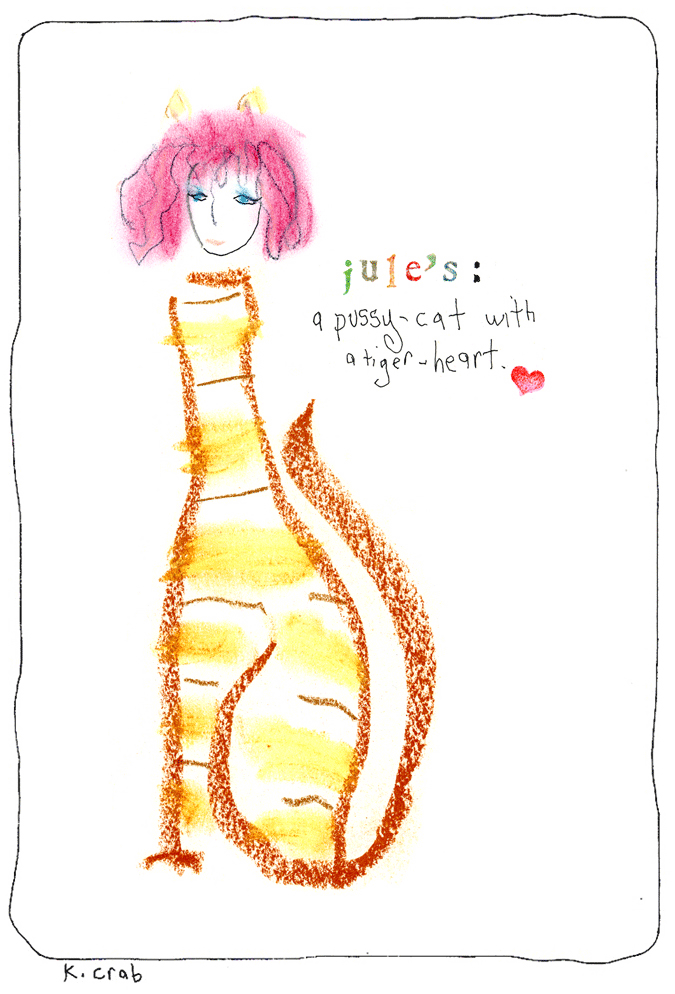 jule's:
a pussy-cat with
a tiger-heart.
K. crab